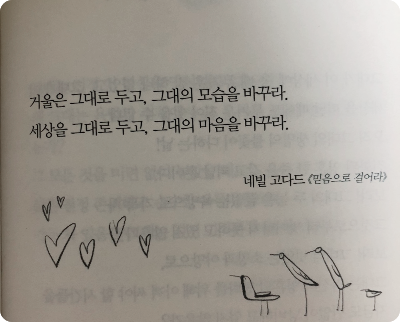 거울은 그대로 두고, 그대의 모습을 바꾸라.
세상을 그대로 두고, 그대의 마음을 바꾸라.
네빌 고다드 《믿음으로 걸어라》